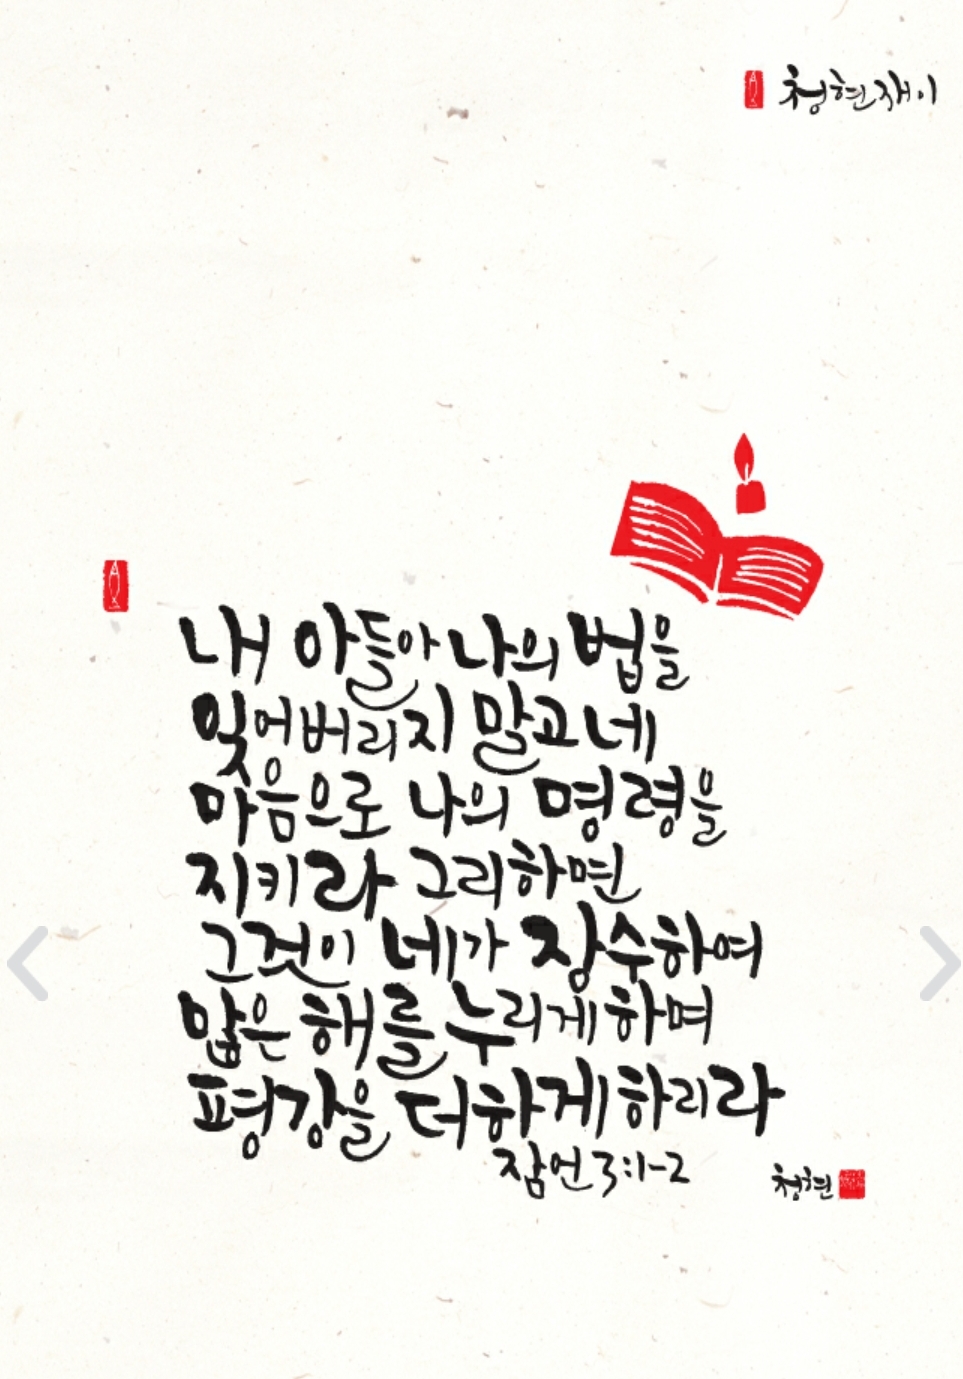 청현재이
내 아들아 나의 법을
잊어버리지 말고 네
마음으로 나의 명령을
지키라 그리하면
그것이 네가 장수하여
많은 해를 누리게 하며
평강을 더하게 하리라
잠언 3:1-2
청현